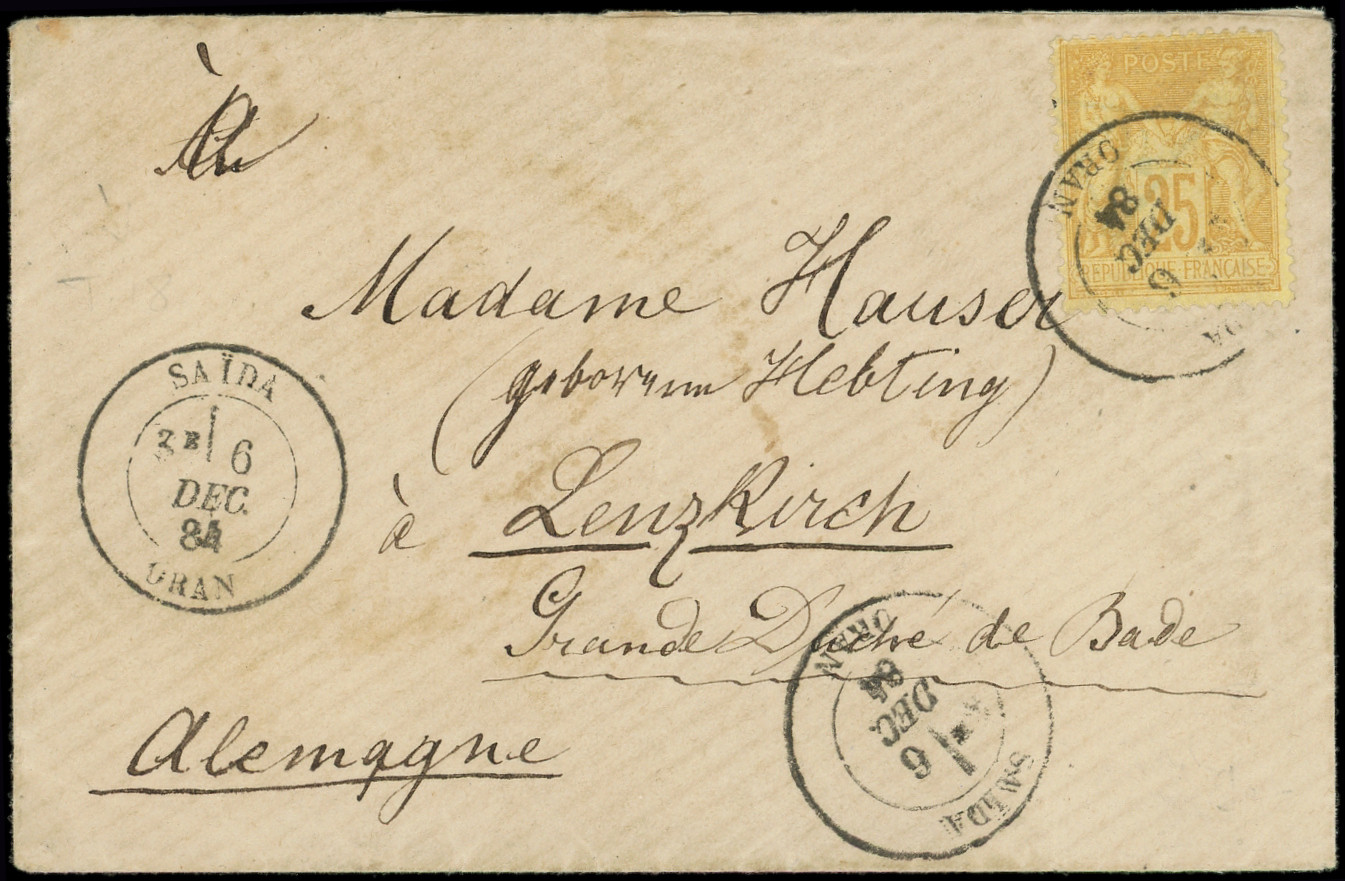 À
POSTE
25
REPUBLIQUE FRANÇAISE
ORAN
6
DEC.
84
Madame Hauser
(geborenn Hebting)
à Lenzkirch
Grande Duché de Bade
Alemagne
SAÏDA
3E 6
DEC.
84
ORAN
SAÏDA
6
DEC.
84
ORAN